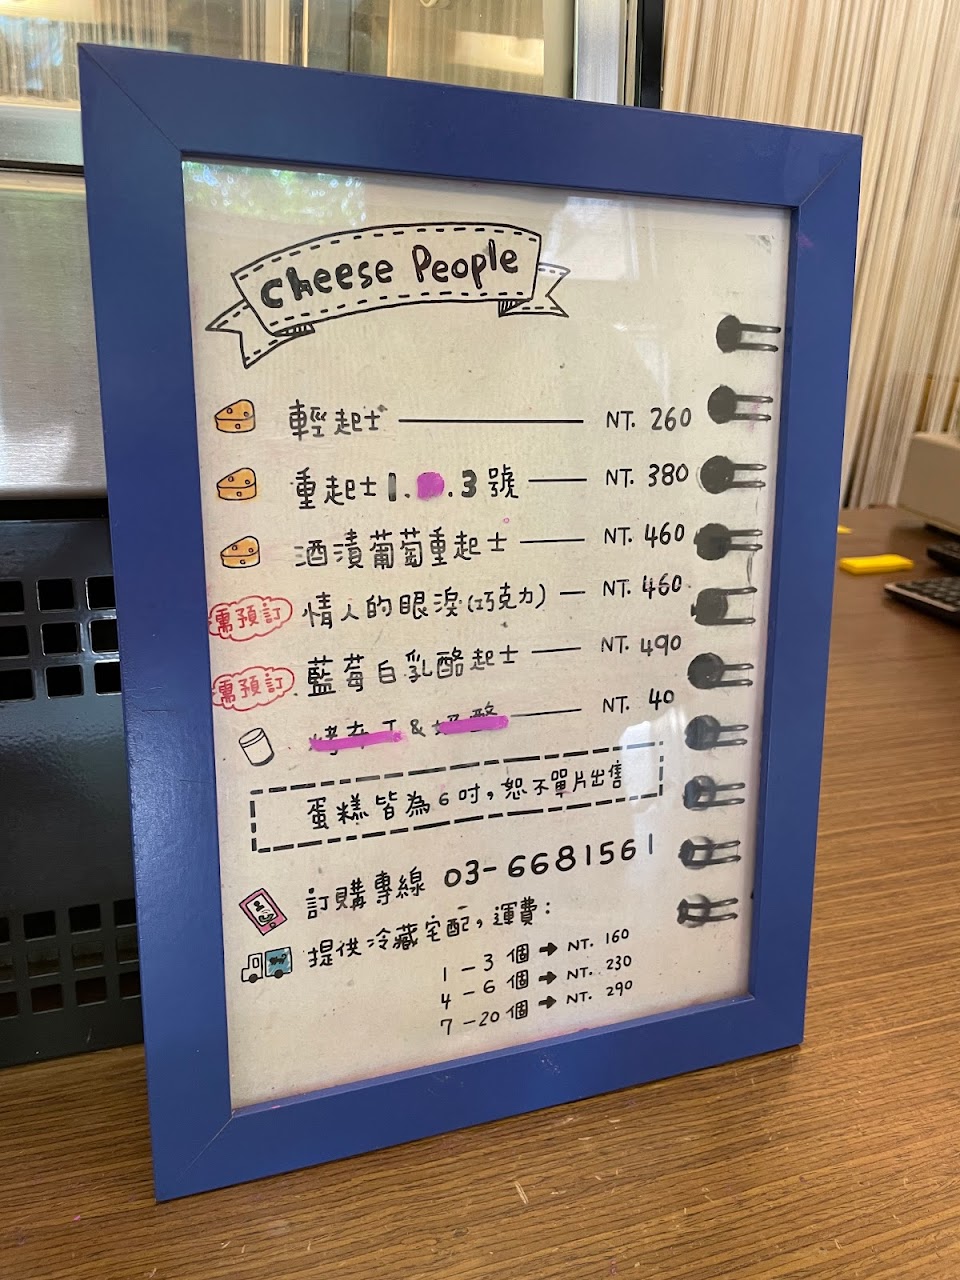 Cheese People
輕起士 NT. 260
重起士 1. .3 號 NT. 380
酒漬葡萄重起士 NT. 460
需預訂 情人的眼淚(巧克力) NT. 460
需預訂 藍莓白乳酪起士 NT. 490
& NT. 40
蛋糕皆為6吋,恕不單片出售
訂購專線 03-6681561
提供冷藏宅配,運費:
1-3個➡NT. 160
4-6個➡NT. 230
7-20個➡NT. 290